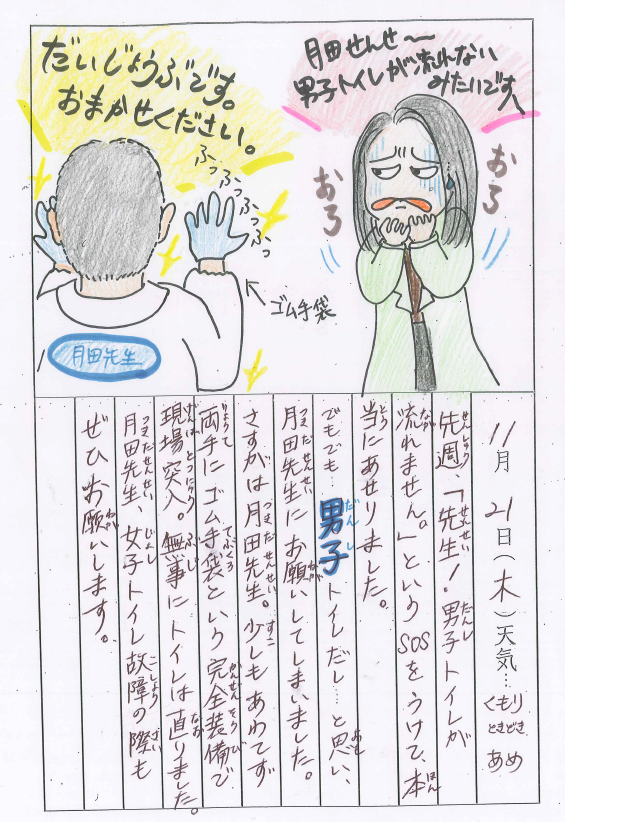 月田せんせ〜
男子トイレが流れない
みたいです
だいじょうぶです。
おまかせください。
ふっ
ふっ
ふっ
ふっ
ふっ
おろ
おろ
ゴム手袋
月田先生
11月21日(木)天気…くもりときどきあめ
先週、「先生!男子トイレが
流れません。」というSOSをうけて、本
当にあせりました。
でもでも…男子トイレだし…と思い、
月田先生にお願いしてしまいました。
さすがは月田先生。少しもあわてず
両手にゴム手袋という完全装備で
現場突入。無事にトイレは直りました。
月田先生、女子トイレ故障の際も
ぜひお願いします。